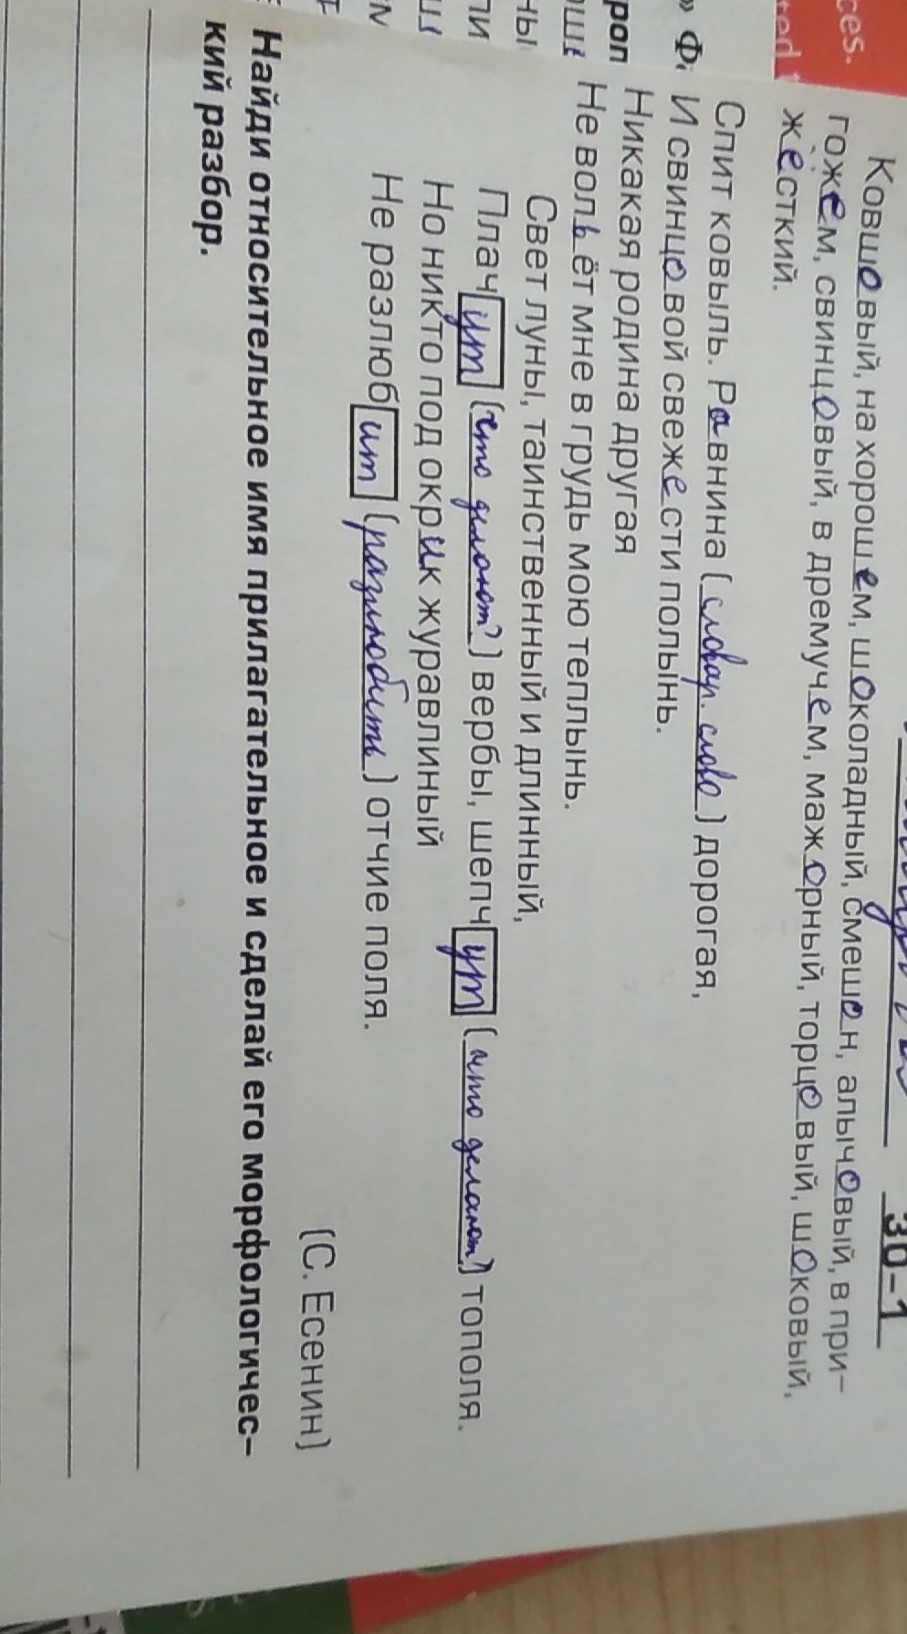 30-1
Ковшовый, на хорошем, шоколадный, смешон, алычовый, в при-
гожем, свинцовый, в дремучем, мажорный, торцовый, шоковый,
жёсткий.
Спит ковыль. Равнина (словар. слово) дорогая,
И свинцовой свежести полынь.
Никакая родина другая
Не вольёт мне в грудь мою теплынь.
Свет луны, таинственный и длинный,
Плачут (что делают?) вербы, шепчут (что делают?) тополя.
Но никто под окрик журавлиный
Не разлюбит (разлюбить) отчие поля.
(С. Есенин)
Найди относительное имя прилагательное и сделай его морфологичес-
кий разбор.
ces.
ted
» Ф
роп